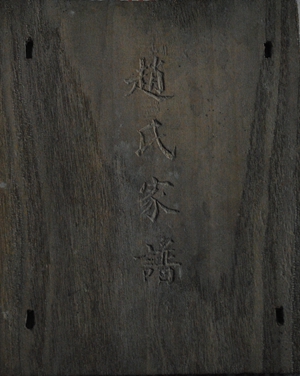 趙氏家譜